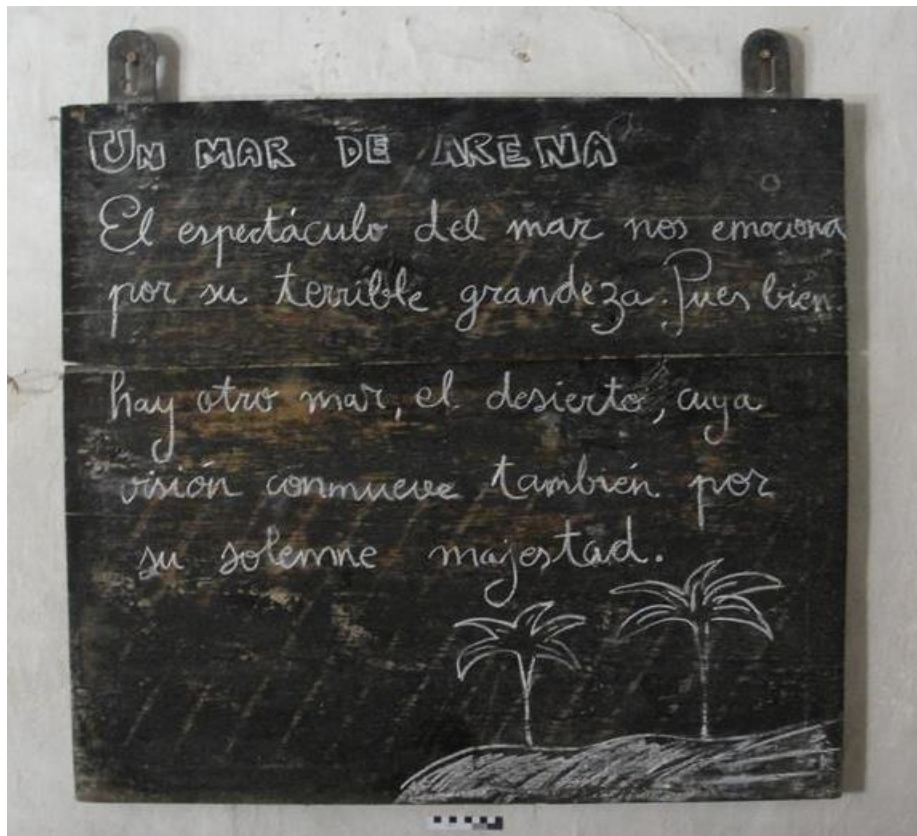 UN MAR DE ARENA
El espectáculo del mar nos emociona
por su terrible grandeza. Pues bien.
hay otro mar, el desierto, cuya
visión conmueve también por
su solemne majestad.